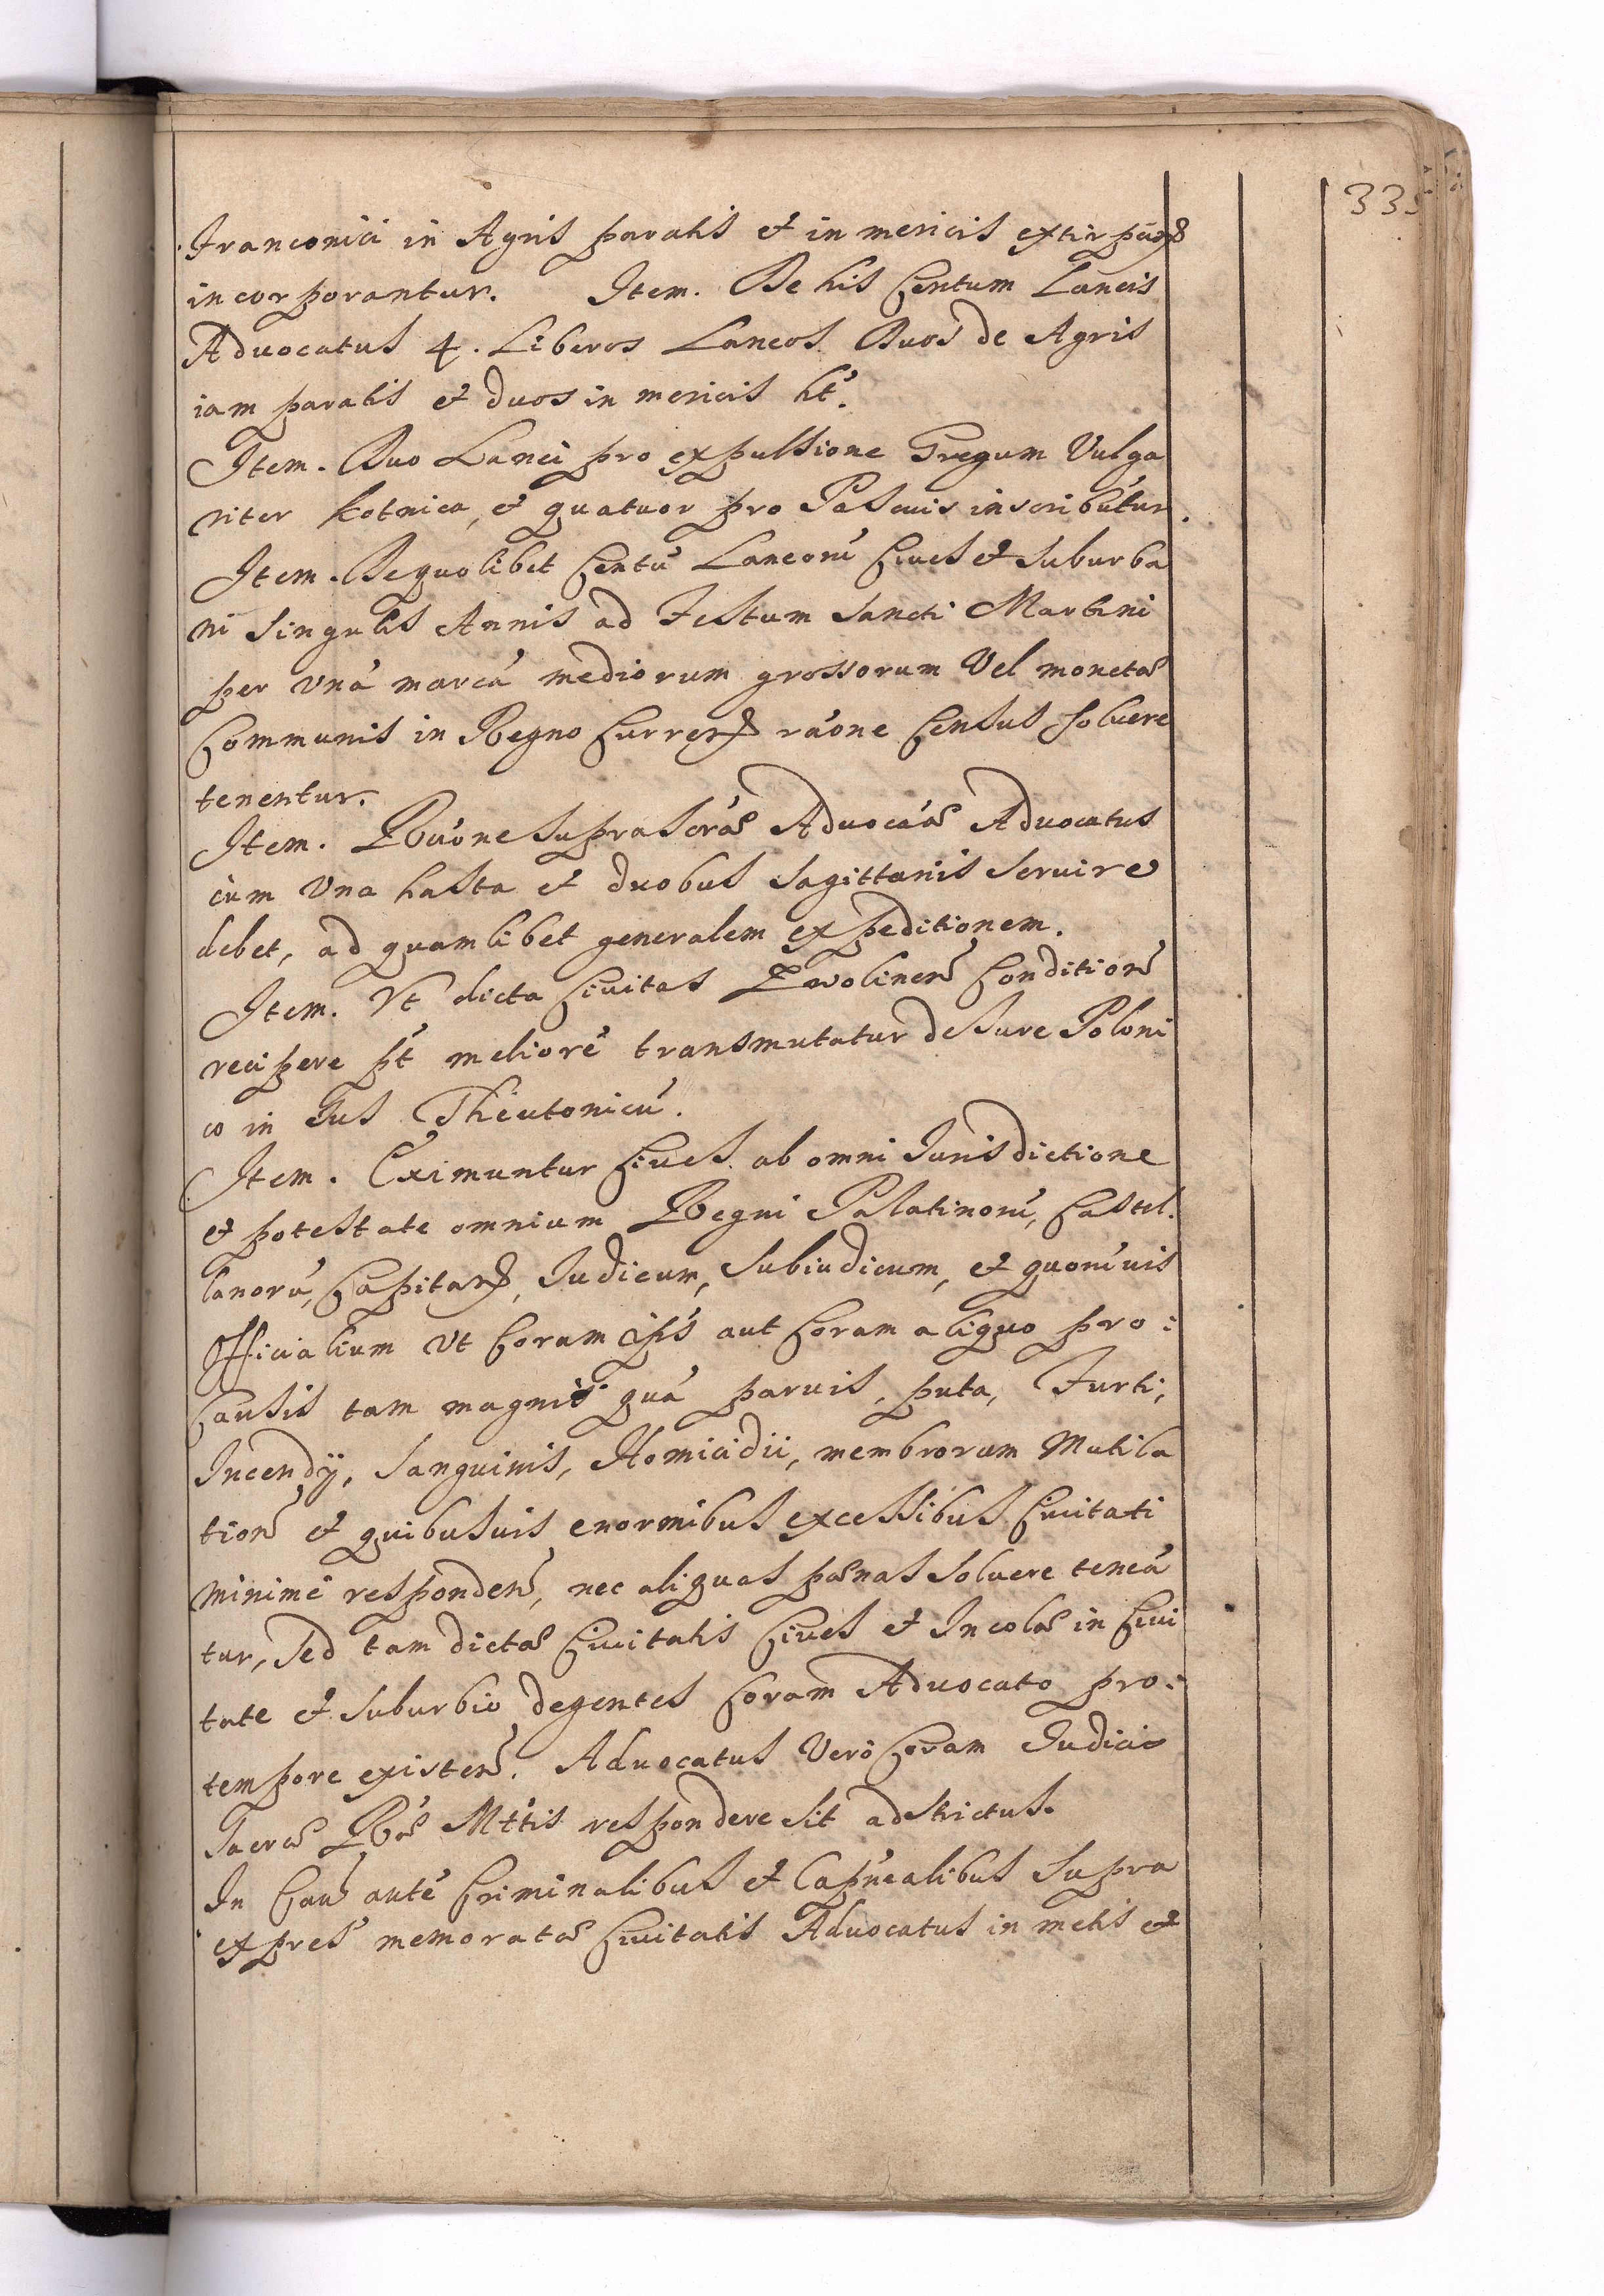 335
Franconici in Agris paratis et in mericis extirpan
incorporantur. Item. De his Centum Laneis
Aduocatus 4. Liberos Laneos Duos de Agris
iam paratis et duos in mericis ht.
Item. Duo Lanei pro expulsione Gregum Vulga
riter kotnica, et quatuor pro Pascuis inscribútur.
Item. De quolibet Centú Laneorú Ciues et Suburba
ni singulis Annis ad Festum Sancti Martini
per vná marcá mediorum grossorum Vel monetæ
Communis in Regno Curren ráone Census soluere
tenentur.
Item. Ráone suprascræ Aduocáæ Aduocatus
cum Vna hasta et duobus sagittariis seruire
debet, ad quamlibet generalem expeditionem.
Item. Vt dicta Ciuitas Zwolinen Condition
recipere pt melioré transmutatur de Jure Poloni
co in Jus Theutonicú.
Item. Eximuntur Ciues ab omni Jurisdictione
et potestate omnium Regni Palatinorú, Castel.
lanorú, Capitan, Judicum, Subiudicum, et quorúuis
Officialium Vt Coram ipś aut Coram aliquo pro:
Causis tam magnis quá paruis, puta, Furti,
Incendÿ, Sanguinis, Homicidii, membrorum Mutila
tion et quibusuis enormibus excessibus Ciuitati
minimé responden, nec aliquas pænas soluere teneá
tur, Sed tam dictæ Ciuitatis Ciues et Incolæ in Ciui
tate et Suburbio degentes Coram Aduocato pro:
tempore existen. Aduocatus Veró Coram Judicio
Sacræ Ræ Mttis respondere sit adstrictus.
In Caus auté Criminalibus et Capnealibus supra
expres memoratæ Ciuitatis Aduocatus in metis et